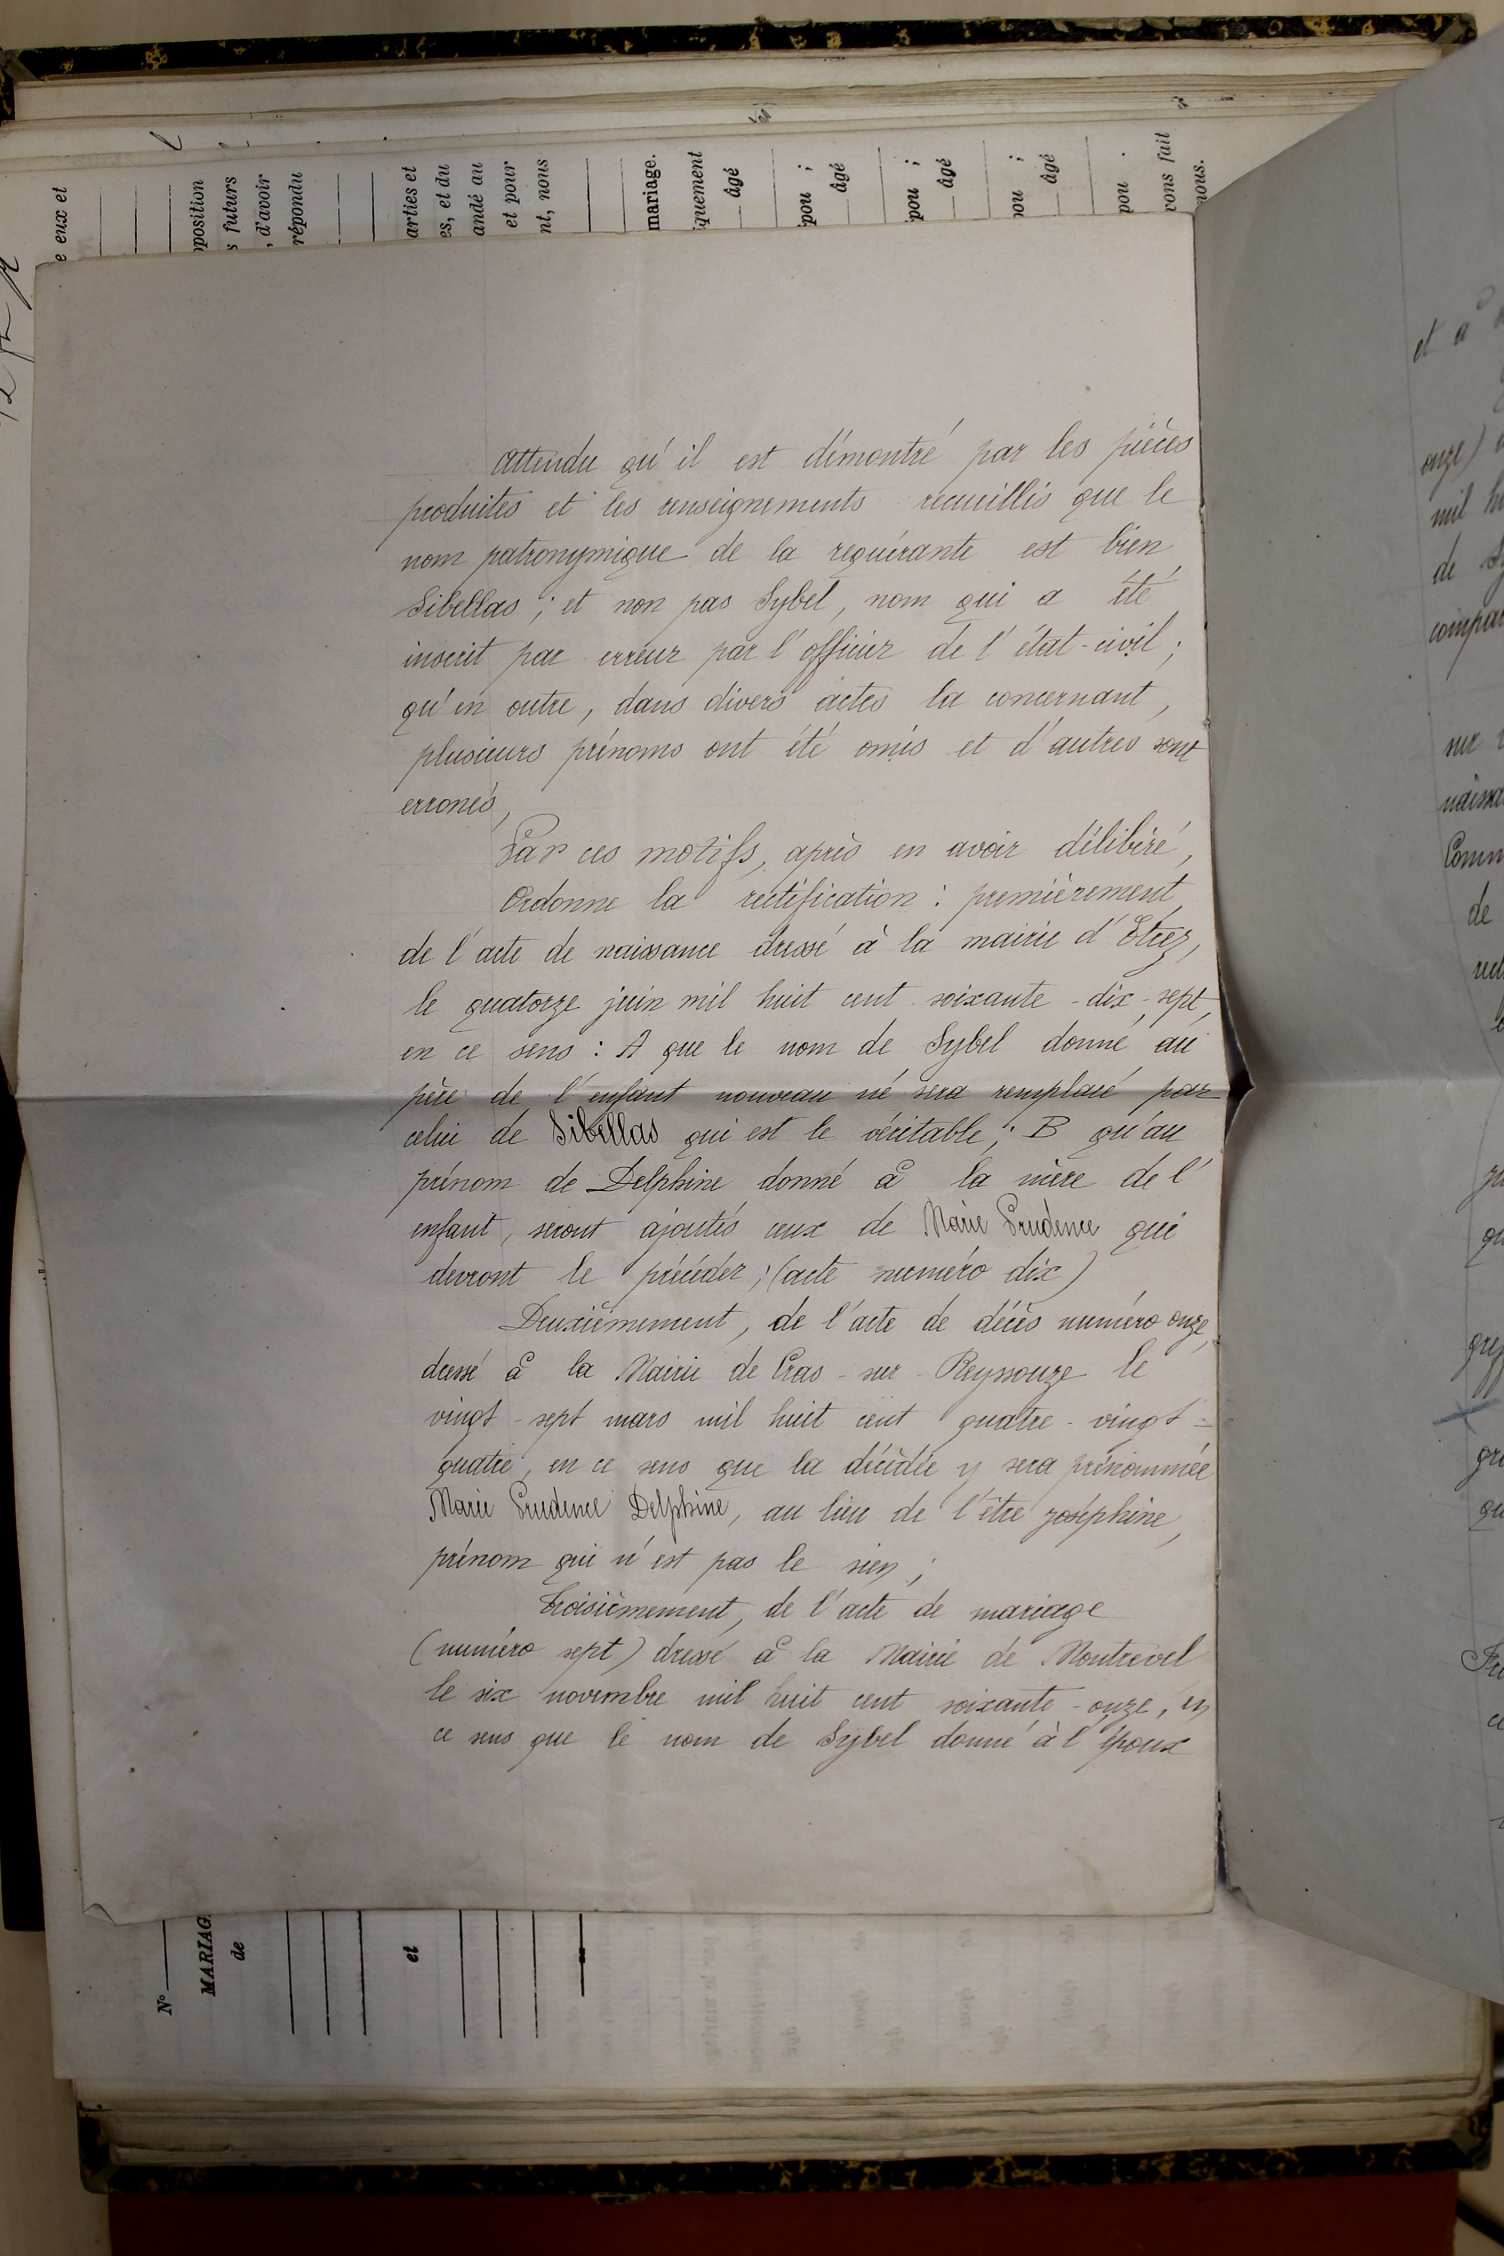 Attendu qu'il est démontré par les pièces
produites et les renseignements recueillis que le
nom patronymique de la requérante est bien
Sibellas ; et non pas Sybel, nom qui a été
inscrit par erreur par l'officier de l'état-civil ;
qu'en outre, dans divers actes la concernant,
plusieurs prénoms ont été omis et d'autres sont
erronés,
Par ces motifs, après en avoir délibéré,
Ordonne la rectification : premièrement,
de l'acte de naissance dressé à la mairie d'Etrez,
le quatorze juin mil huit cent soixante-dix-sept,
en ce sens : A que le nom de Sybel donné au
père de l'enfant nouveau né sera remplacé par
celui de Sibellas qui est le véritable ; B qu'au
prénom de Delphine donné à la mère de l'
enfant, seront ajoutés ceux de Marie Prudence qui
devront le précéder ; (acte numéro dix)
Deuxièmement, de l'acte de décès numéro onze,
dressé à la Mairie de Cras-sur-Reyssouze le
vingt-sept mars mil huit cent quatre-vingt-
quatre, en ce sens que la décédée y sera prénommée
Marie Prudence Delphine, au lieu de l'être Joséphine,
prénom qui n'est pas le sien ;
Troisièmement, de l'acte de mariage
(numéro sept) dressé à la Mairie de Montrevel
le six novembre mil huit cent soixante-onze, en
ce sens que le nom de Sybel donné à l'époux
e eux et
position
s futurs
, d'avoir
répondu
arties et
es, et du
andé au
et pour
nt, nous
mariage.
quement
âgé
pou ;
âgé
pou ;
âgé
pou ;
âgé
pou .
vons fait
nous.
N°
MARIAG
de
et
et à
onze)
mil
de
compa
sur
naissa
Comm
de